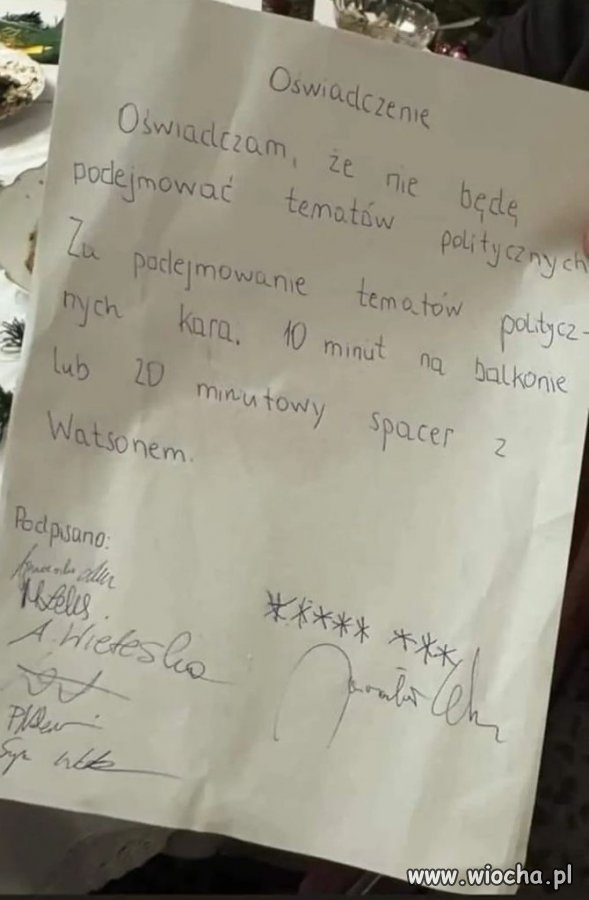 Oświadczenie
Oświadczam, że nie będę
podejmować tematów politycznych
Za podejmowanie tematów politycz-
nych kara. 10 minut na balkonie
lub 20 minutowy spacer z
Watsonem.
Podpisano:
A. Wieteska
***** ***
www.wiocha.pl